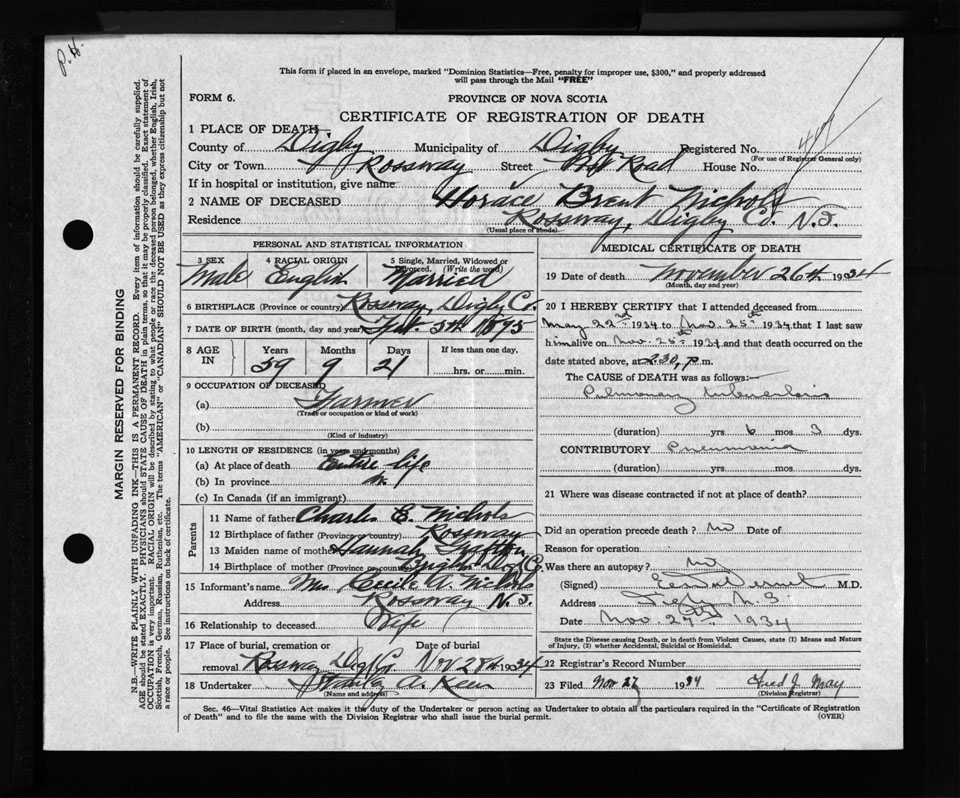 P.H.
This form if placed in an envelope, marked "Dominion Statistics—Free, penalty for improper use, $300," and properly addressed
will pass through the Mail "FREE"
FORM 6.
PROVINCE OF NOVA SCOTIA
CERTIFICATE OF REGISTRATION OF DEATH
1 PLACE OF DEATH
County of Digby Municipality of Digby Registered No.
(For use of Registrar General only)
City or Town Rossway Street Road House No.
If in hospital or institution, give name
2 NAME OF DECEASED Horace Brent Nichols
Residence Rossway, Digby Co. N.S.
(Usual place of abode)
PERSONAL AND STATISTICAL INFORMATION
3 SEX Male
4 RACIAL ORIGIN English
5 Single, Married, Widowed or Divorced. (Write the word) Married
6 BIRTHPLACE (Province or country) Rossway Digby Co.
7 DATE OF BIRTH (month, day and year) Feb. 5th 1875
8 AGE IN Years 59 Months 9 Days 21 If less than one day,
hrs. or min.
9 OCCUPATION OF DECEASED
(a) Farmer
(Trade or occupation or kind of work)
(b)
(Kind of industry)
10 LENGTH OF RESIDENCE (in years and months)
(a) At place of death Entire life
(b) In province
(c) In Canada (if an immigrant)
Parents
11 Name of father Charles E. Nichols
12 Birthplace of father (Province or country) Rossway
13 Maiden name of mother Hannah
14 Birthplace of mother (Province or country)
15 Informant's name Mrs Cecile A. Nichols
Address Rossway N.S.
16 Relationship to deceased Wife
17 Place of burial, cremation or removal Rossway Dig Co. Date of burial Nov 28th 1934
18 Undertaker Stanley A. Keen
(Name and address)
MEDICAL CERTIFICATE OF DEATH
19 Date of death November 26th 1934
(Month, day and year)
20 I HEREBY CERTIFY that I attended deceased from
May 22nd 1934 to Nov. 25th 1934 that I last saw
him alive on Nov. 25th 1934 and that death occurred on the
date stated above, at 2.30, P.m.
The CAUSE of DEATH was as follows:—
Pulmonary tuberculosis
(duration) yrs 6 mos 3 dys.
CONTRIBUTORY Pneumonia
(duration) yrs. mos. dys.
21 Where was disease contracted if not at place of death?
Did an operation precede death? no Date of
Reason for operation
Was there an autopsy? no
(Signed) M.D.
Address N.S.
Date Nov. 27th 1934
State the Disease causing Death, or in death from Violent Causes, state (1) Means and Nature
of Injury, (2) whether Accidental, Suicidal or Homicidal.
22 Registrar's Record Number
23 Filed Nov 27 1934 Fred J. May
(Division Registrar)
Sec. 46—Vital Statistics Act makes it the duty of the Undertaker or person acting as Undertaker to obtain all the particulars required in the "Certificate of Registration
of Death" and to file the same with the Division Registrar who shall issue the burial permit.
(OVER)
MARGIN RESERVED FOR BINDING
N.B.—WRITE PLAINLY WITH UNFADING INK—THIS IS A PERMANENT RECORD. Every item of information should be carefully supplied.
AGE should be stated EXACTLY. PHYSICIANS should STATE CAUSE OF DEATH in plain terms, so that it may be properly classified. Exact statement of
OCCUPATION is very important. RACIAL ORIGIN will be described by stating to what people or race the deceased person belonged, whether English, Irish,
Scottish, French, German, Russian, Ruthenian, etc. The terms "AMERICAN" or "CANADIAN" SHOULD NOT BE USED as they express citizenship but not
a race or people. See instructions on back of certificate.